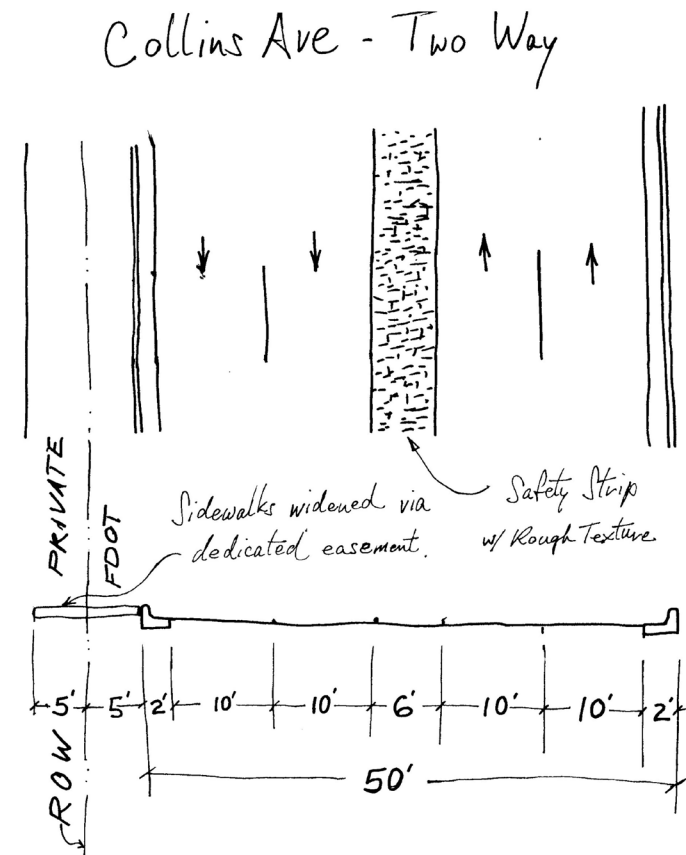 Collins Ave - Two Way
PRIVATE
FDOT
Sidewalks widened via
dedicated easement.
Safety Strip
w/ Rough Texture
5' 5' 2' 10' 10' 6' 10' 10' 2'
50'
ROW